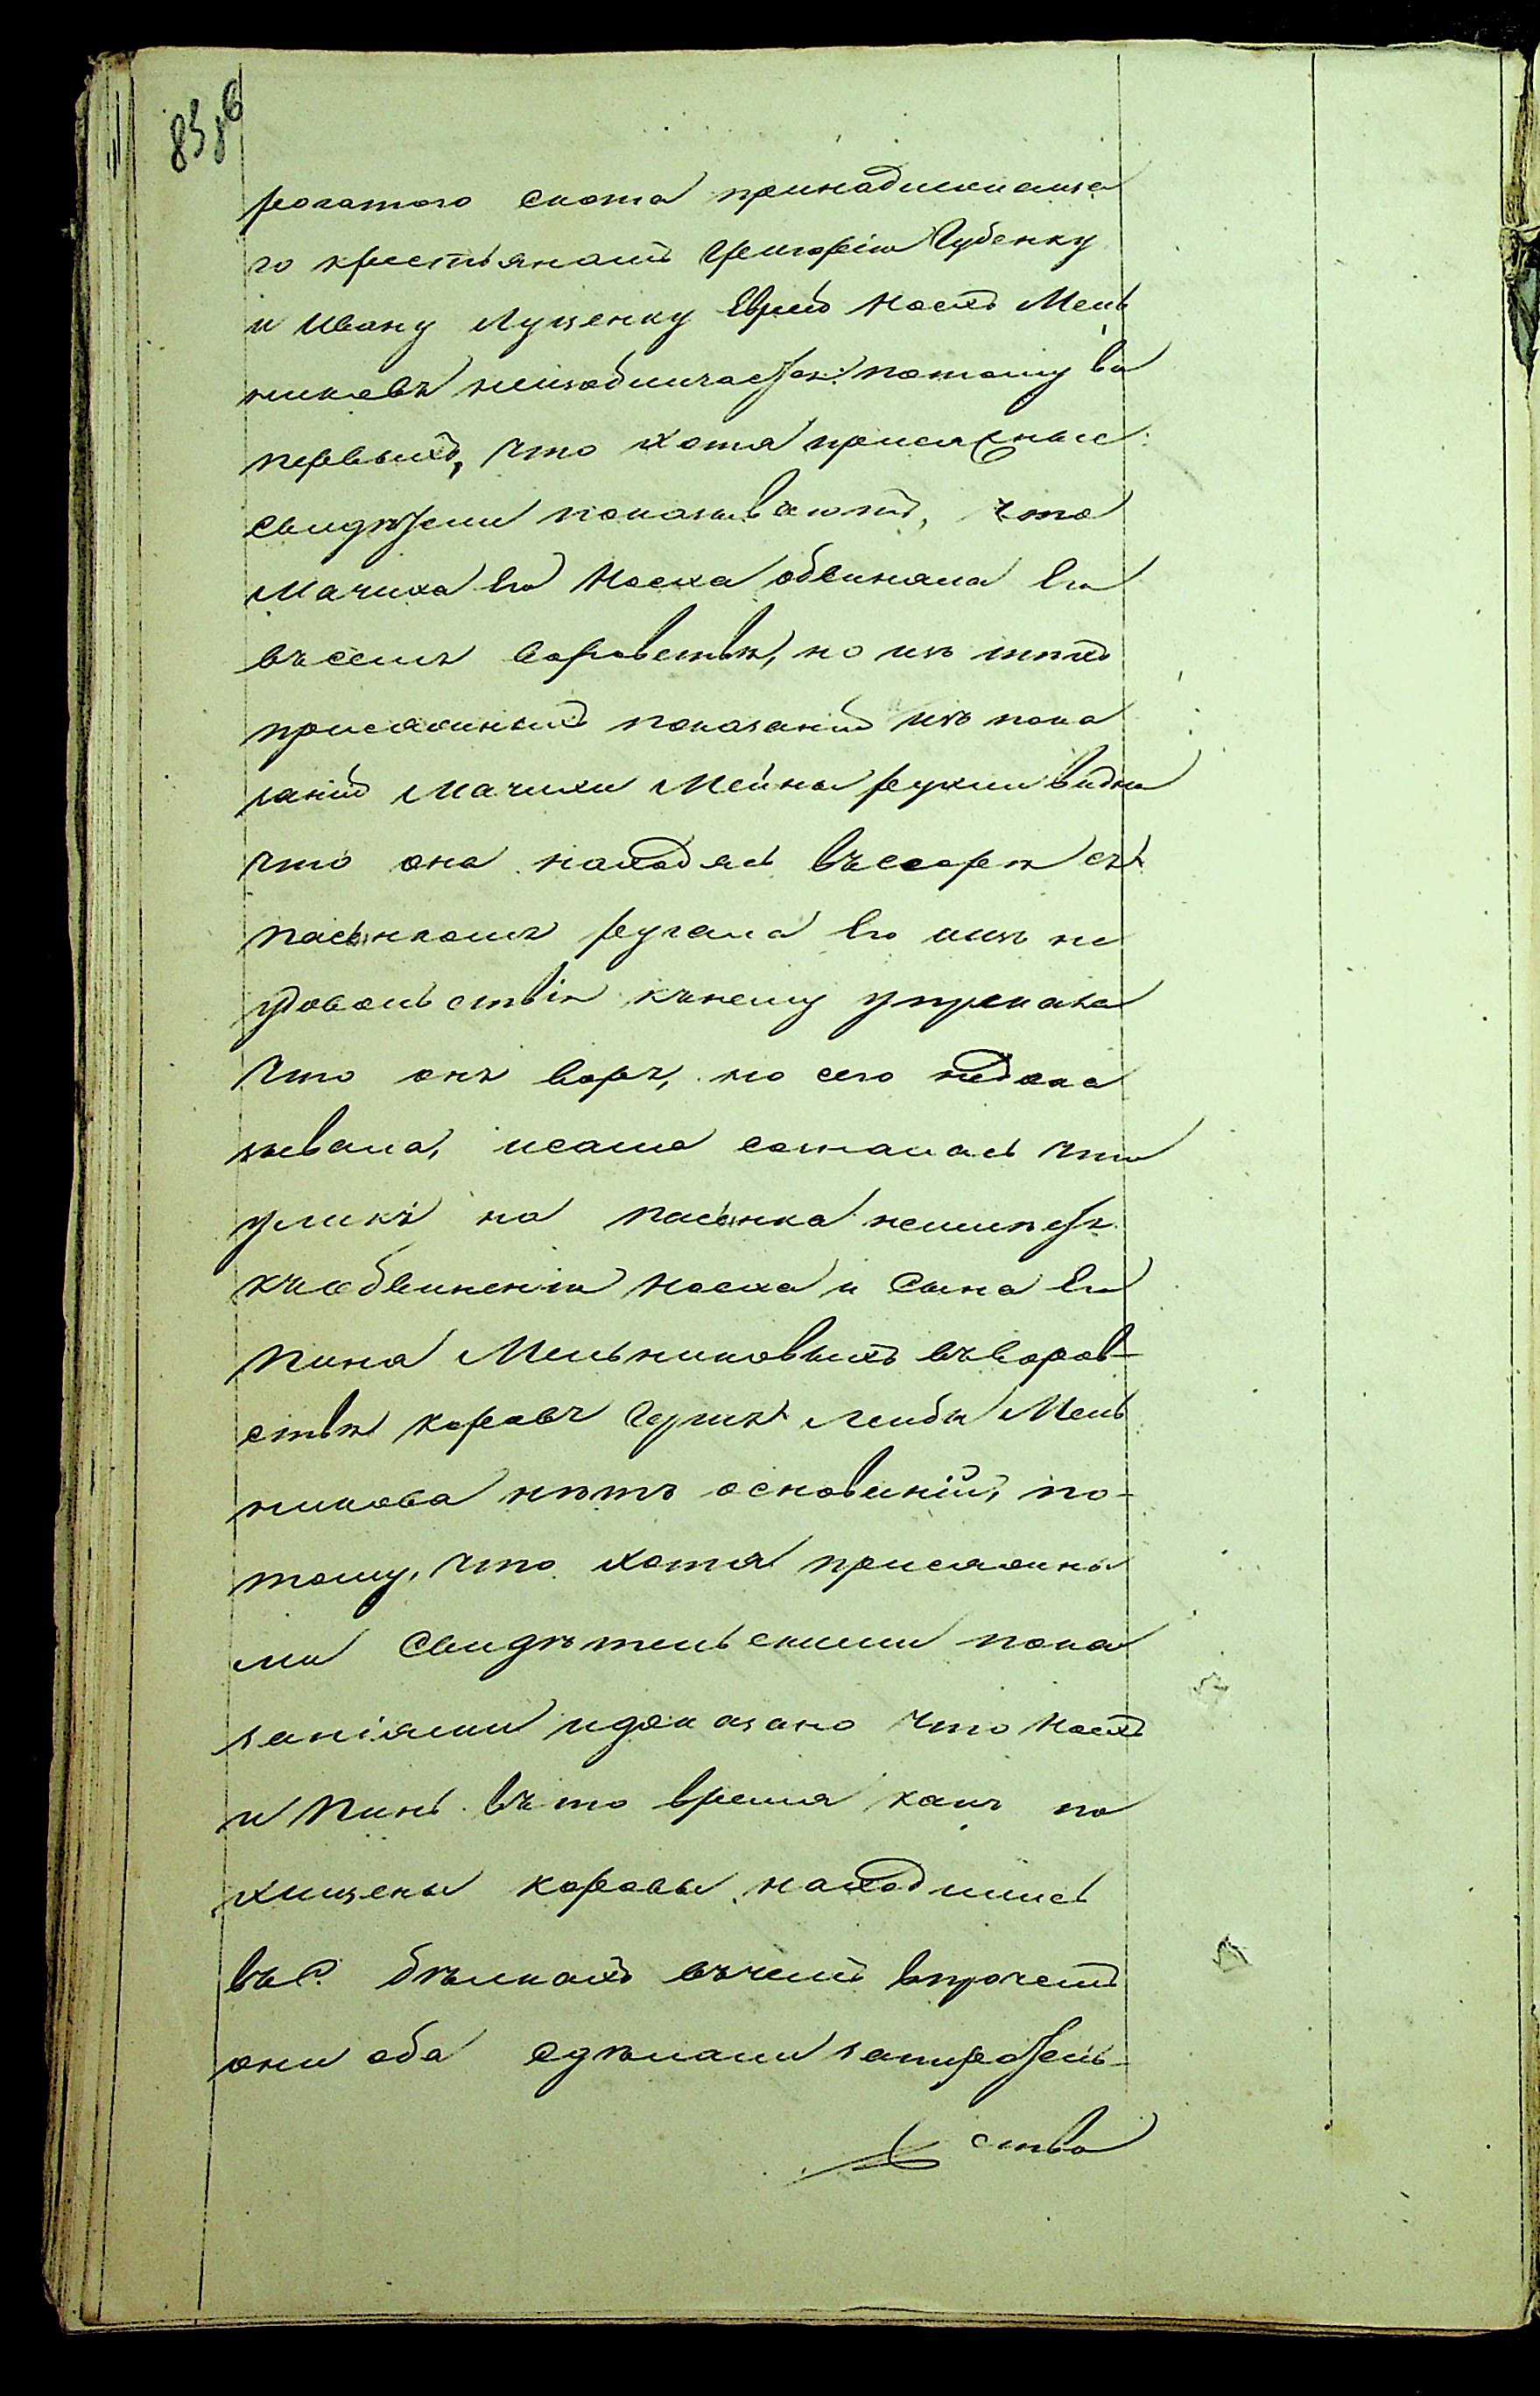 рогатаго скота принадлежаща
го крестьянамъ Григорію Губенку
и Ивану Луценку Еврей Носхъ Мель
никовъ неизобличается: потому во
первыхъ, что хотя присяжные
свидѣтели показываютъ, что
Мачиха его Носха обвиняла его
въ семъ воровствѣ, но изъ тѣхъ
присяжныхъ показаній изъ пока
заній Мачихи Мейны Рухли видно
что она находясь въ ссорѣ съ
пасынкомъ ругала его изъ не
удовольствія къ нему упрекала
что онъ воръ, но сего недока
зывала, и сама созналась что
уликъ на пасынка неимѣетъ
къ обвиненію Носха и Сына его
Пиня Мельниковыхъ въ воров-
ствѣ коровъ Лейбы Мель
никова нѣтъ основаній, по-
тому, что хотя присяжны
ми Свидѣтельскими пока
заніями и доказано что Носхъ
и Пинь въ то время какъ по
хищены коровы находились
въ С. Бѣлкахъ въ чемъ впрочемъ
они оба сдѣлали запиратель-
ство